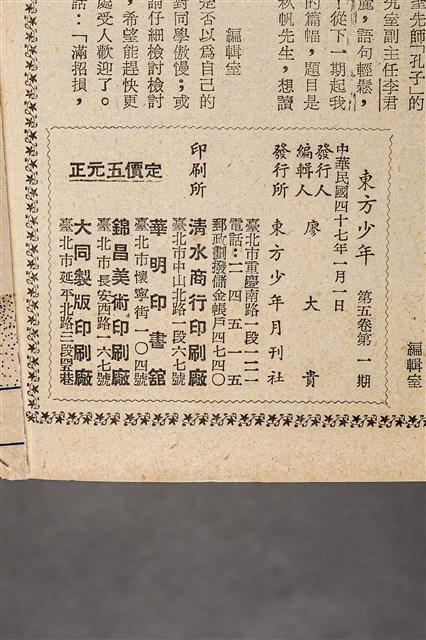 室先師「孔子」的
究室副主任李君
麗，語句輕鬆，
！從下一期起我
的篇幅，題目是
秋帆先生，想讀
編輯室
是否以爲自己的
對同學傲慢；或
請仔細檢討檢討
，希望能趕快更
處受人歡迎了。
話：「滿招損，
編輯室
東方少年 第五卷第一期
中華民國四十七年一月一日
發行人
編輯人 廖大貴
發行所 東方少年月刊社
臺北市重慶南路一段一二一
電話：二四五一五
郵政劃撥儲金帳戶四七四〇
印刷所 清水商行印刷廠
臺北市中山北路一段六七號
華明印書舘
臺北市懷寧街一〇四號
錦昌美術印刷廠
臺北市長安西路一六七號
大同製版印刷廠
臺北市延平北路三段四五巷
定價五元正